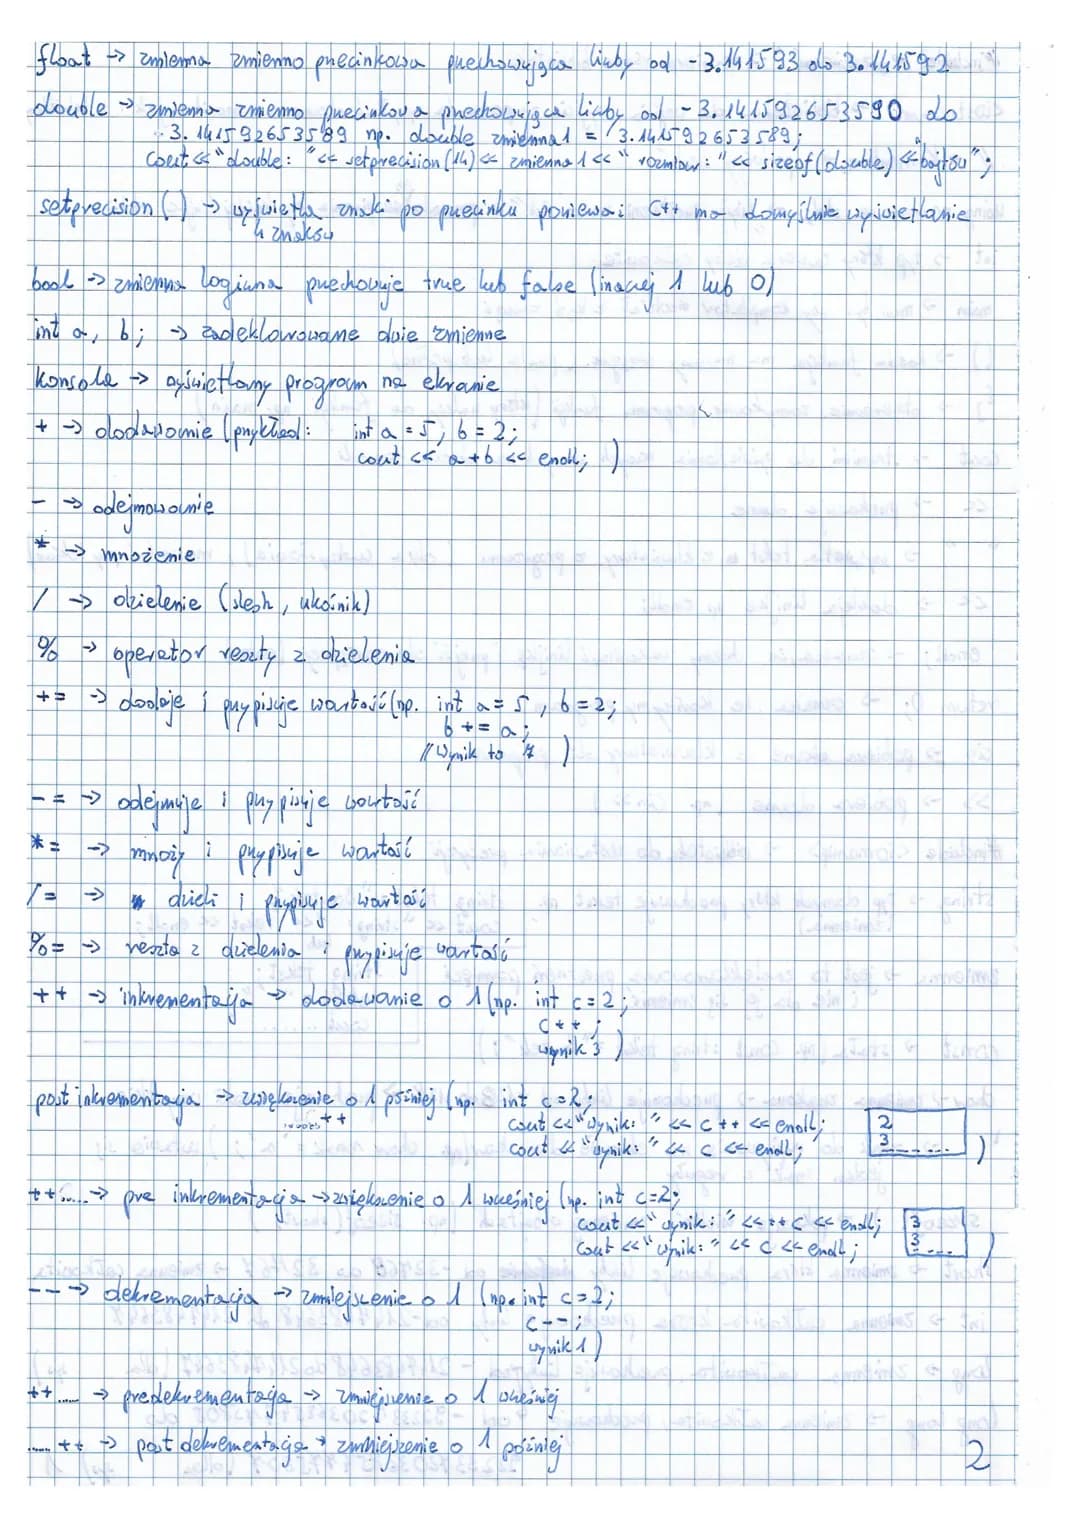 float → zmienna zmienno przecinkowa przechowująca liczby od -3.141593 do 3.141592
double → zmienna zmienno przecinkowa przechowująca liczby od -3.141592653590 do
3.141592653589 np. double zmienna1 = 3.141592653589;
cout << "double: " << setprecision(14) << zmienna1 << " rozmiar: " << sizeof(double) << "bajtów";
setprecision() → wyświetla znaki po przecinku ponieważ C++ ma domyślnie wyświetlanie
4 znaków
bool → zmienna logiczna przechowuje true lub false (inaczej 1 lub 0)
int a, b; → zadeklarowane dwie zmienne
konsola → wyświetlany program na ekranie
+ → dodawanie (przykład: int a = 5, b = 2;
cout << a+b << endl; )
- → odejmowanie
* → mnożenie
/ → dzielenie (slesh, ukośnik)
% → operator reszty z dzielenia
+= → dodaje i przypisuje wartość (np. int a = 5, b = 2;
b += a;
// Wynik to 7 )
-= → odejmuje i przypisuje wartość
*= → mnoży i przypisuje wartość
/= → dzieli i przypisuje wartość
%= → reszta z dzielenia i przypisuje wartość
++ → inkrementacja → dodawanie o 1 (np. int c = 2;
c++;
wynik 3 )
post inkrementacja → zwiększenie o 1 później (np. int c = 2;
......++ cout << "Wynik: " << c++ << endl; 2
cout << "wynik: " << c << endl; 3...... )
++..... → pre inkrementacja → zwiększenie o 1 wcześniej (np. int c=2;
cout << "wynik: " << ++c << endl; 3
cout << "wynik: " << c << endl; 3.... )
-- → dekrementacja → zmniejszenie o 1 (np. int c = 2;
c--;
wynik 1 )
++..... → predekrementacja → zmniejszenie o 1 wcześniej
.....++ → post dekrementacja → zmniejszenie o 1 później
2